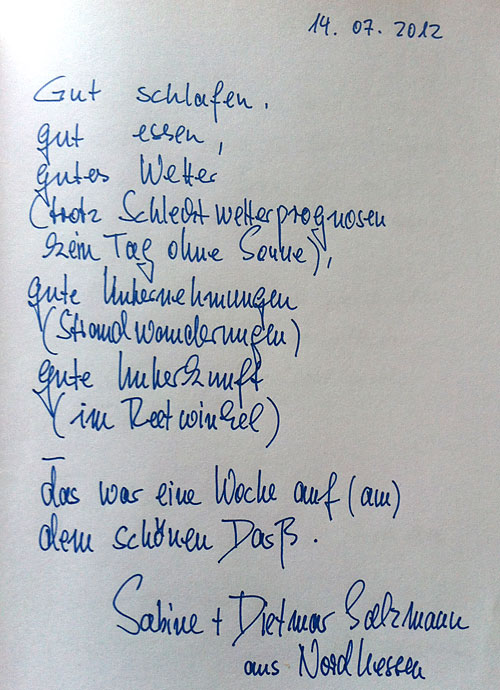 14. 07. 2012
Gut schlafen,
gut essen,
gutes Wetter
(trotz Schlechtwetterprognosen
kein Tag ohne Sonne),
gute Unternehmungen
(Strandwanderungen)
gute Unterkunft
(im Reetwinkel)
–
das war eine Woche auf (am)
dem schönen Darß.
Sabine + Dietmar Salzmann
aus Nordhessen